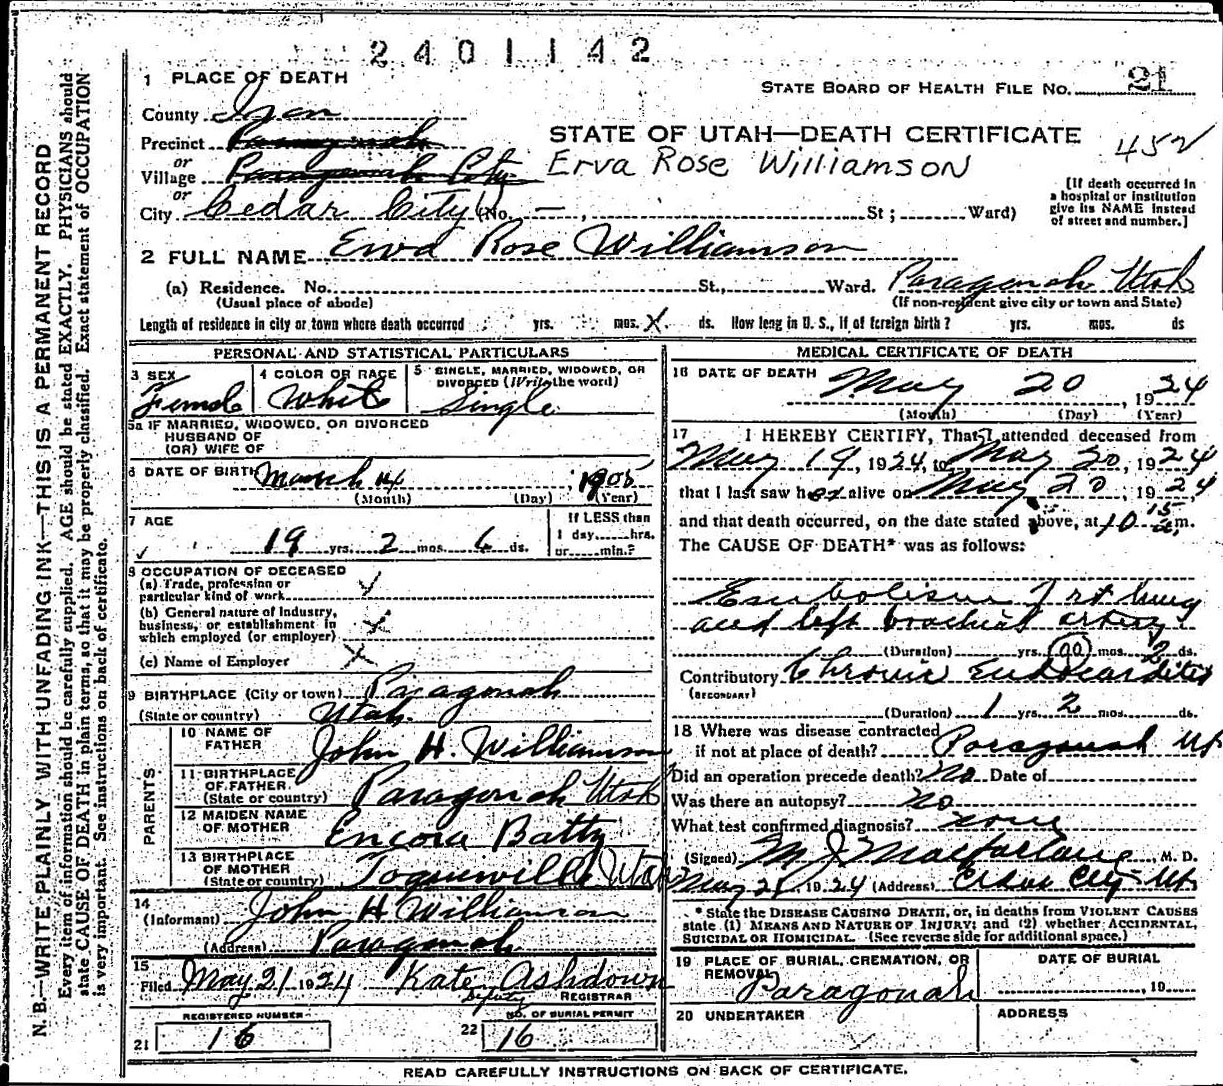 2401142
1 PLACE OF DEATH
STATE BOARD OF HEALTH FILE NO. 21
County Iron
Precinct Paragonah
STATE OF UTAH—DEATH CERTIFICATE
452
or
Village Paragonah City
Erva Rose Williamson
or
City Cedar City (No. — , St ; Ward)
[If death occurred in a hospital or institution give its NAME instead of street and number.]
2 FULL NAME Erva Rose Williamson
(a) Residence. No. St., Ward. Paragonah Utah
(Usual place of abode) (If non-resident give city or town and State)
Length of residence in city or town where death occurred yrs. mos. X ds. How long in U. S., if of foreign birth? yrs. mos. ds
PERSONAL AND STATISTICAL PARTICULARS
3 SEX
Female
4 COLOR OR RACE
White
5 SINGLE, MARRIED, WIDOWED, OR DIVORCED (Write the word)
Single
5a IF MARRIED, WIDOWED, OR DIVORCED
HUSBAND OF
(OR) WIFE OF
6 DATE OF BIRTH March 14 1905
(Month) (Day) (Year)
7 AGE
19 yrs. 2 mos. 6 ds.
If LESS than
1 day......hrs.
or......min.?
8 OCCUPATION OF DECEASED
(a) Trade, profession or
particular kind of work
(b) General nature of industry,
business, or establishment in
which employed (or employer)
(c) Name of Employer X
9 BIRTHPLACE (City or town) Paragonah
(State or country) Utah.
PARENTS
10 NAME OF FATHER John H. Williamson
11 BIRTHPLACE OF FATHER (State or country) Paragonah Utah
12 MAIDEN NAME OF MOTHER Encora Batty
13 BIRTHPLACE OF MOTHER (State or country) Toquerville Utah
14
(Informant) John H Williamson
(Address) Paragonah
15
Filed May 21 1924 Kate Ashdown
Deputy REGISTRAR
REGISTERED NUMBER
21 16
NO. OF BURIAL PERMIT
22 16
MEDICAL CERTIFICATE OF DEATH
16 DATE OF DEATH May 20, 1924
(Month) (Day) (Year)
17 I HEREBY CERTIFY, That I attended deceased from
May 19, 1924, to May 20, 1924
that I last saw her alive on May 20, 1924
and that death occurred, on the date stated above, at 10 15 a m.
The CAUSE OF DEATH* was as follows:
Embolism of rt lung
and left brachial artery
(Duration) yrs. mos. 2 ds.
Contributory Chronic Endocarditis
(SECONDARY)
(Duration) 1 yrs. 2 mos. ds.
18 Where was disease contracted
if not at place of death? Paragonah Ut
Did an operation precede death? no Date of
Was there an autopsy? no
What test confirmed diagnosis? none
(Signed) M J Macfarlane, M. D.
May 21, 1924 (Address) Cedar City Ut
* State the DISEASE CAUSING DEATH, or, in deaths from VIOLENT CAUSES
state (1) MEANS AND NATURE OF INJURY; and (2) whether ACCIDENTAL,
SUICIDAL OR HOMICIDAL. (See reverse side for additional space.)
19 PLACE OF BURIAL, CREMATION, OR REMOVAL
Paragonah
DATE OF BURIAL
, 19
20 UNDERTAKER
ADDRESS
READ CAREFULLY INSTRUCTIONS ON BACK OF CERTIFICATE.
N. B.—WRITE PLAINLY WITH UNFADING INK—THIS IS A PERMANENT RECORD
Every item of information should be carefully supplied. AGE should be stated EXACTLY. PHYSICIANS should
state CAUSE OF DEATH in plain terms, so that it may be properly classified. Exact statement of OCCUPATION
is very important. See instructions on back of certificate.